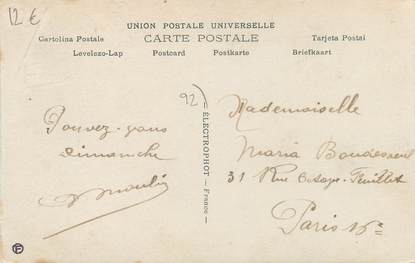 12 €
UNION POSTALE UNIVERSELLE
Cartolina Postale CARTE POSTALE Tarjeta Postal
Levelezo-Lap Postcard Postkarte Briefkaart
92
ÉLECTROPHOT - France -
Pouvez-vous
dimanche
Mademoiselle
Maria
31 Rue Octave-Feuillet
Paris 16e